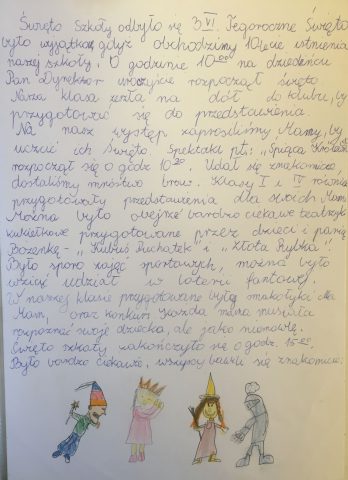 Święto Szkoły odbyło się 3 VI. Tegoroczne Święto
było wyjątkowe, gdyż obchodzimy 10lecie istnienia
naszej szkoły. O godzinie 10.00 na dziedzińcu
Pan Dyrektor uroczyście rozpoczął święto.
Nasza klasa zeszła na dół do klubu, by
przygotować się do przedstawienia.
Na nasz występ zaprosiliśmy Mamy, by
uczcić ich Święto. Spektakl pt: "Śpiąca
rozpoczął się o godz 10.30. Udał się znakomicie,
dostaliśmy mnóstwo braw. Klasy I i IV również
przygotowały przedstawienia dla swoich Mam.
Można było obejrzeć bardzo ciekawe teatrzyki
kukiełkowe przygotowane przez dzieci i panią
Bożenkę - "Kubuś Puchatek" i "Złota Rybka".
Było sporo zajęć sportowych, można było
wziąć udział w loterii fantowej.
W naszej klasie przygotowane były smakołyki dla
Mam, oraz konkurs każda mama musiała
rozpoznać swoje dziecko, ale jako niemowlę.
Święto szkoły zakończyło się o godz. 15.00.
Było bardzo ciekawie, wszyscy bawili się znakomicie.